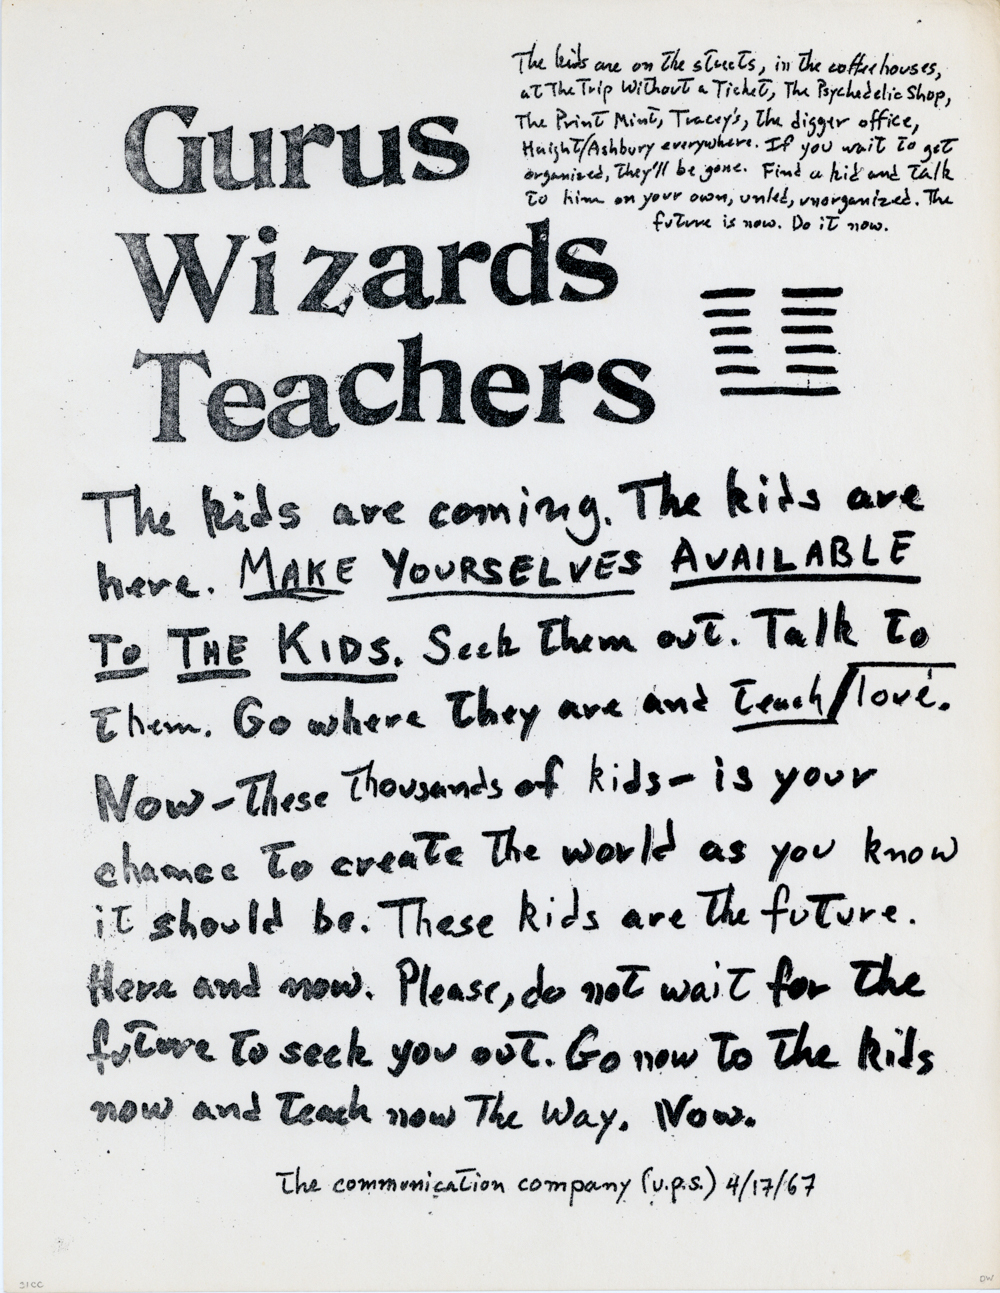 Gurus
Wizards
Teachers
The kids are on the streets, in the coffee houses,
at The Trip Without a Ticket, The Psychedelic Shop,
The Print Mint, Tracey's, the digger office,
Haight/Ashbury everywhere. If you wait to get
organized, they'll be gone. Find a kid and talk
to him on your own, unled, unorganized. The
future is now. Do it now.
The kids are coming. The kids are
here. MAKE YOURSELVES AVAILABLE
TO THE KIDS. Seek them out. Talk to
them. Go where they are and teach/love.
Now-these thousands of kids- is your
chance to create the world as you know
it should be. These kids are the future.
Here and now. Please, do not wait for the
future to seek you out. Go now to the kids
now and teach now The Way. Now.
the communication company (u.p.s.) 4/17/67
SICC
DW